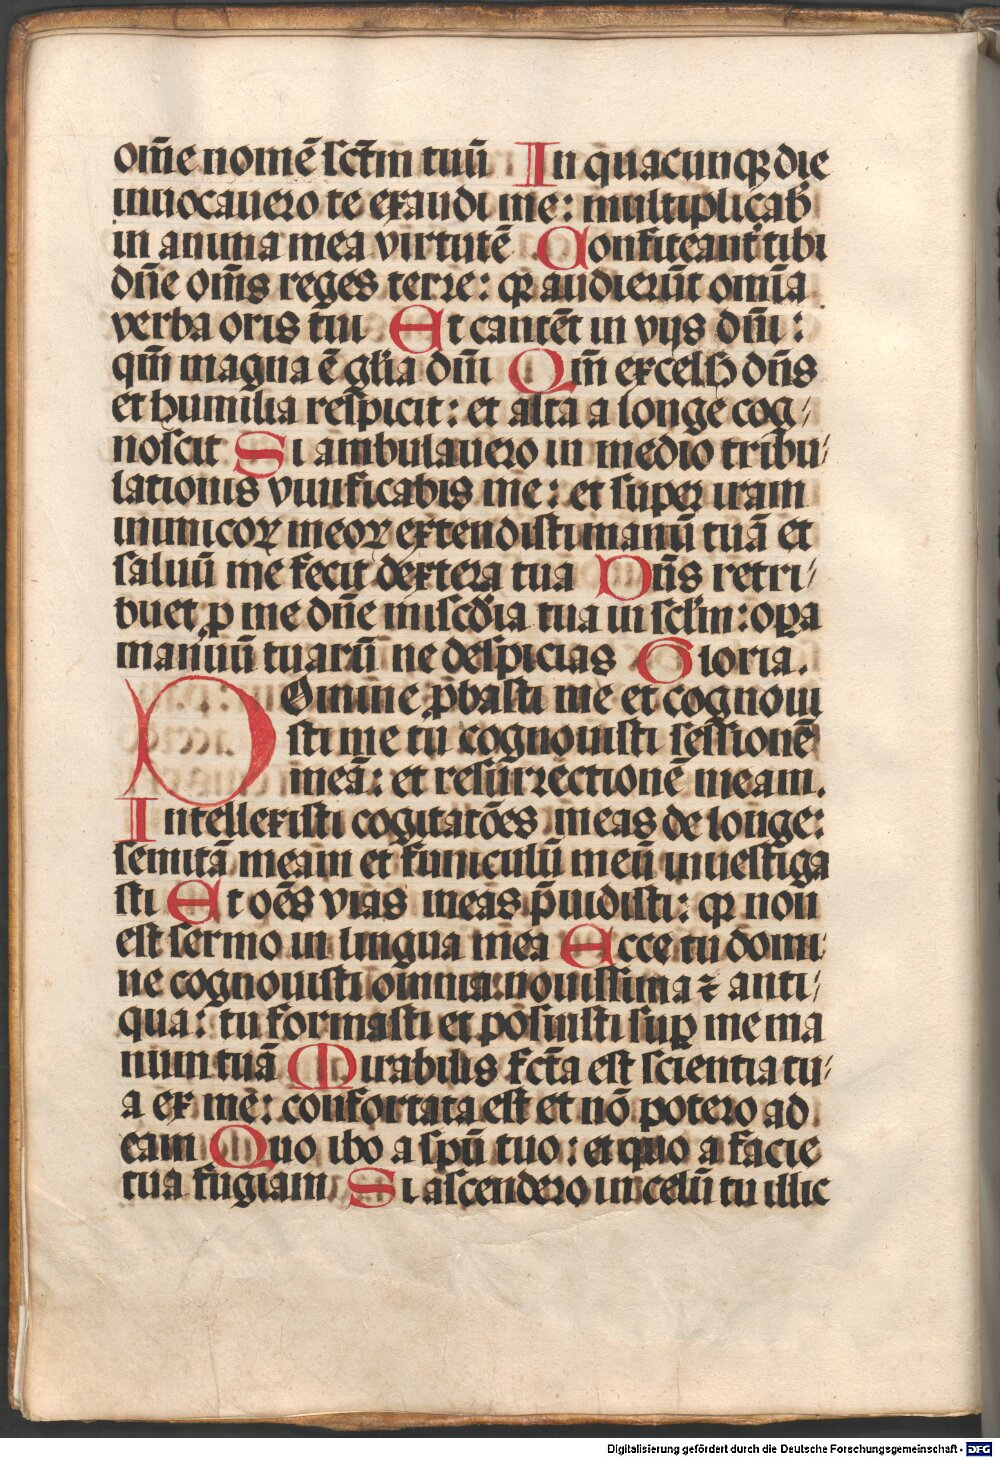 om̄e nomē sct̄m tuū In quacunqꝫ die
inuocauero te exaudi me: multiplicab̛
in anima mea virtutē Confiteant᷑ tibi
dn̄e om̄s reges terre: qꝛ audierūt omīa
verba oris tui Et cantēt in vijs dn̄i:
qm̄ magna ē glīa dn̄i Qm̄ excelsꝰ dn̄s
et humilia respicit: et alta a longe cog⸗
noscit Si ambulauero in medio tribu⸗
lationis viuificabis me: et super iram
inimicoꝝ meoꝝ extendisti manū tuā et
saluū me fecit dextera tua Dn̄s retri⸗
buet ꝓ me dn̄e misc̄dia tua in sclm̄: oꝑa
manuū tuarū ne despicias Gloria.
Domine ꝓbasti me et cognoui
sti me tu cognouisti sessionē
meā: et resurrectionē meam.
Intellexisti cogitatōes meas de longe:
semitā meam et funiculū meū inuestiga
sti Et oēs vias meas p̄uidisti: qꝛ non
est sermo in lingua mea Ecce tu domi⸗
ne cognouisti omnia nouissima ⁊ anti⸗
qua: tu formasti et posuisti suꝑ me ma
num tuā Mirabilis fct̄a est scientia tu⸗
a ex me: confortata est et nō potero ad
eam Quo ibo a spū tuo: et quo a facie
tua fugiam Si ascendero in celū tu illic
Digitalisierung gefördert durch die Deutsche Forschungsgemeinschaft - DFG